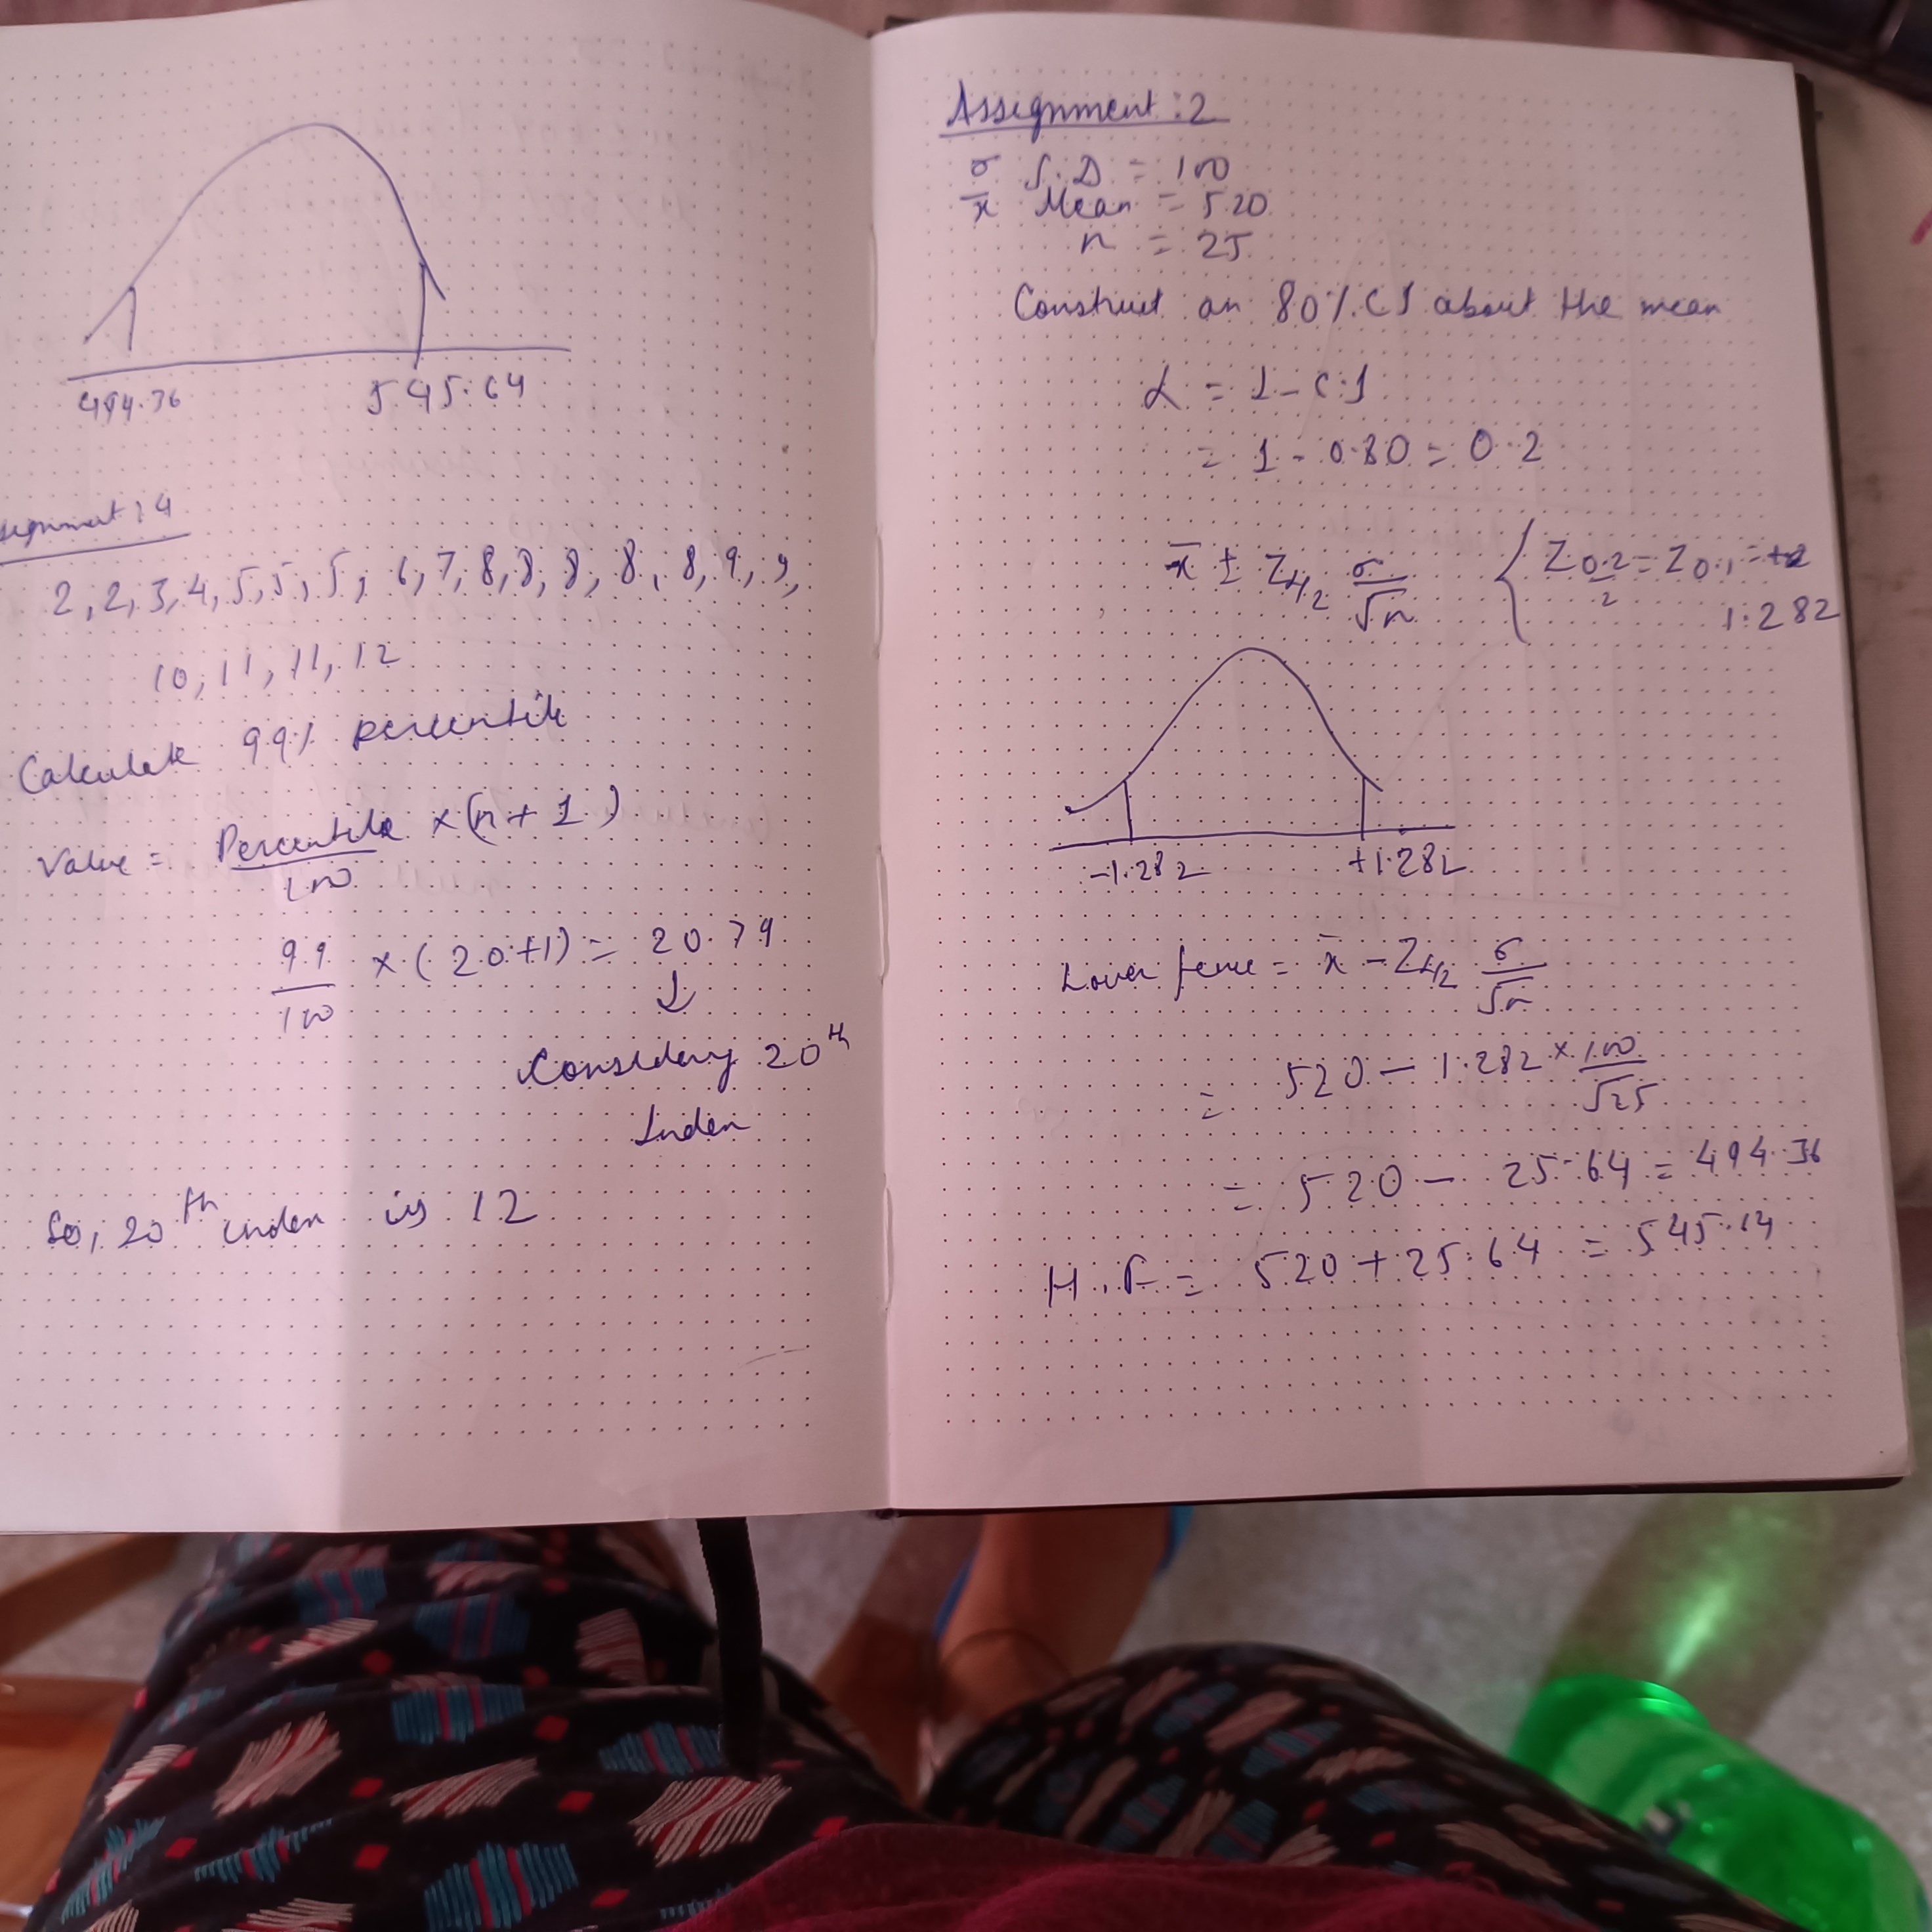 494.36
545.64
2, 2, 3, 4, 5, 5, 5, 6, 7, 8, 8, 8, 8, 8, 9, 9,
10, 11, 11, 12
Calculate 99% percentile
Value = Percentile/100 × (n+1)
99/100 × (20+1) = 20.79
↓
20th
Index
So, 20th index is 12
Assignment : 2
σ S.D = 100
x̄ Mean = 520
n = 25
Construct an 80% CI about the mean
α = 1 - C.I
= 1 - 0.80 = 0.2
x̄ ± Zα/2 σ/√n { Z0.2/2 = Z0.1 =
1.282
-1.282
+1.282
Lower fence = x̄ - Zα/2 σ/√n
= 520 - 1.282 × 100/√25
= 520 - 25.64 = 494.36
H.F = 520 + 25.64 = 545.64